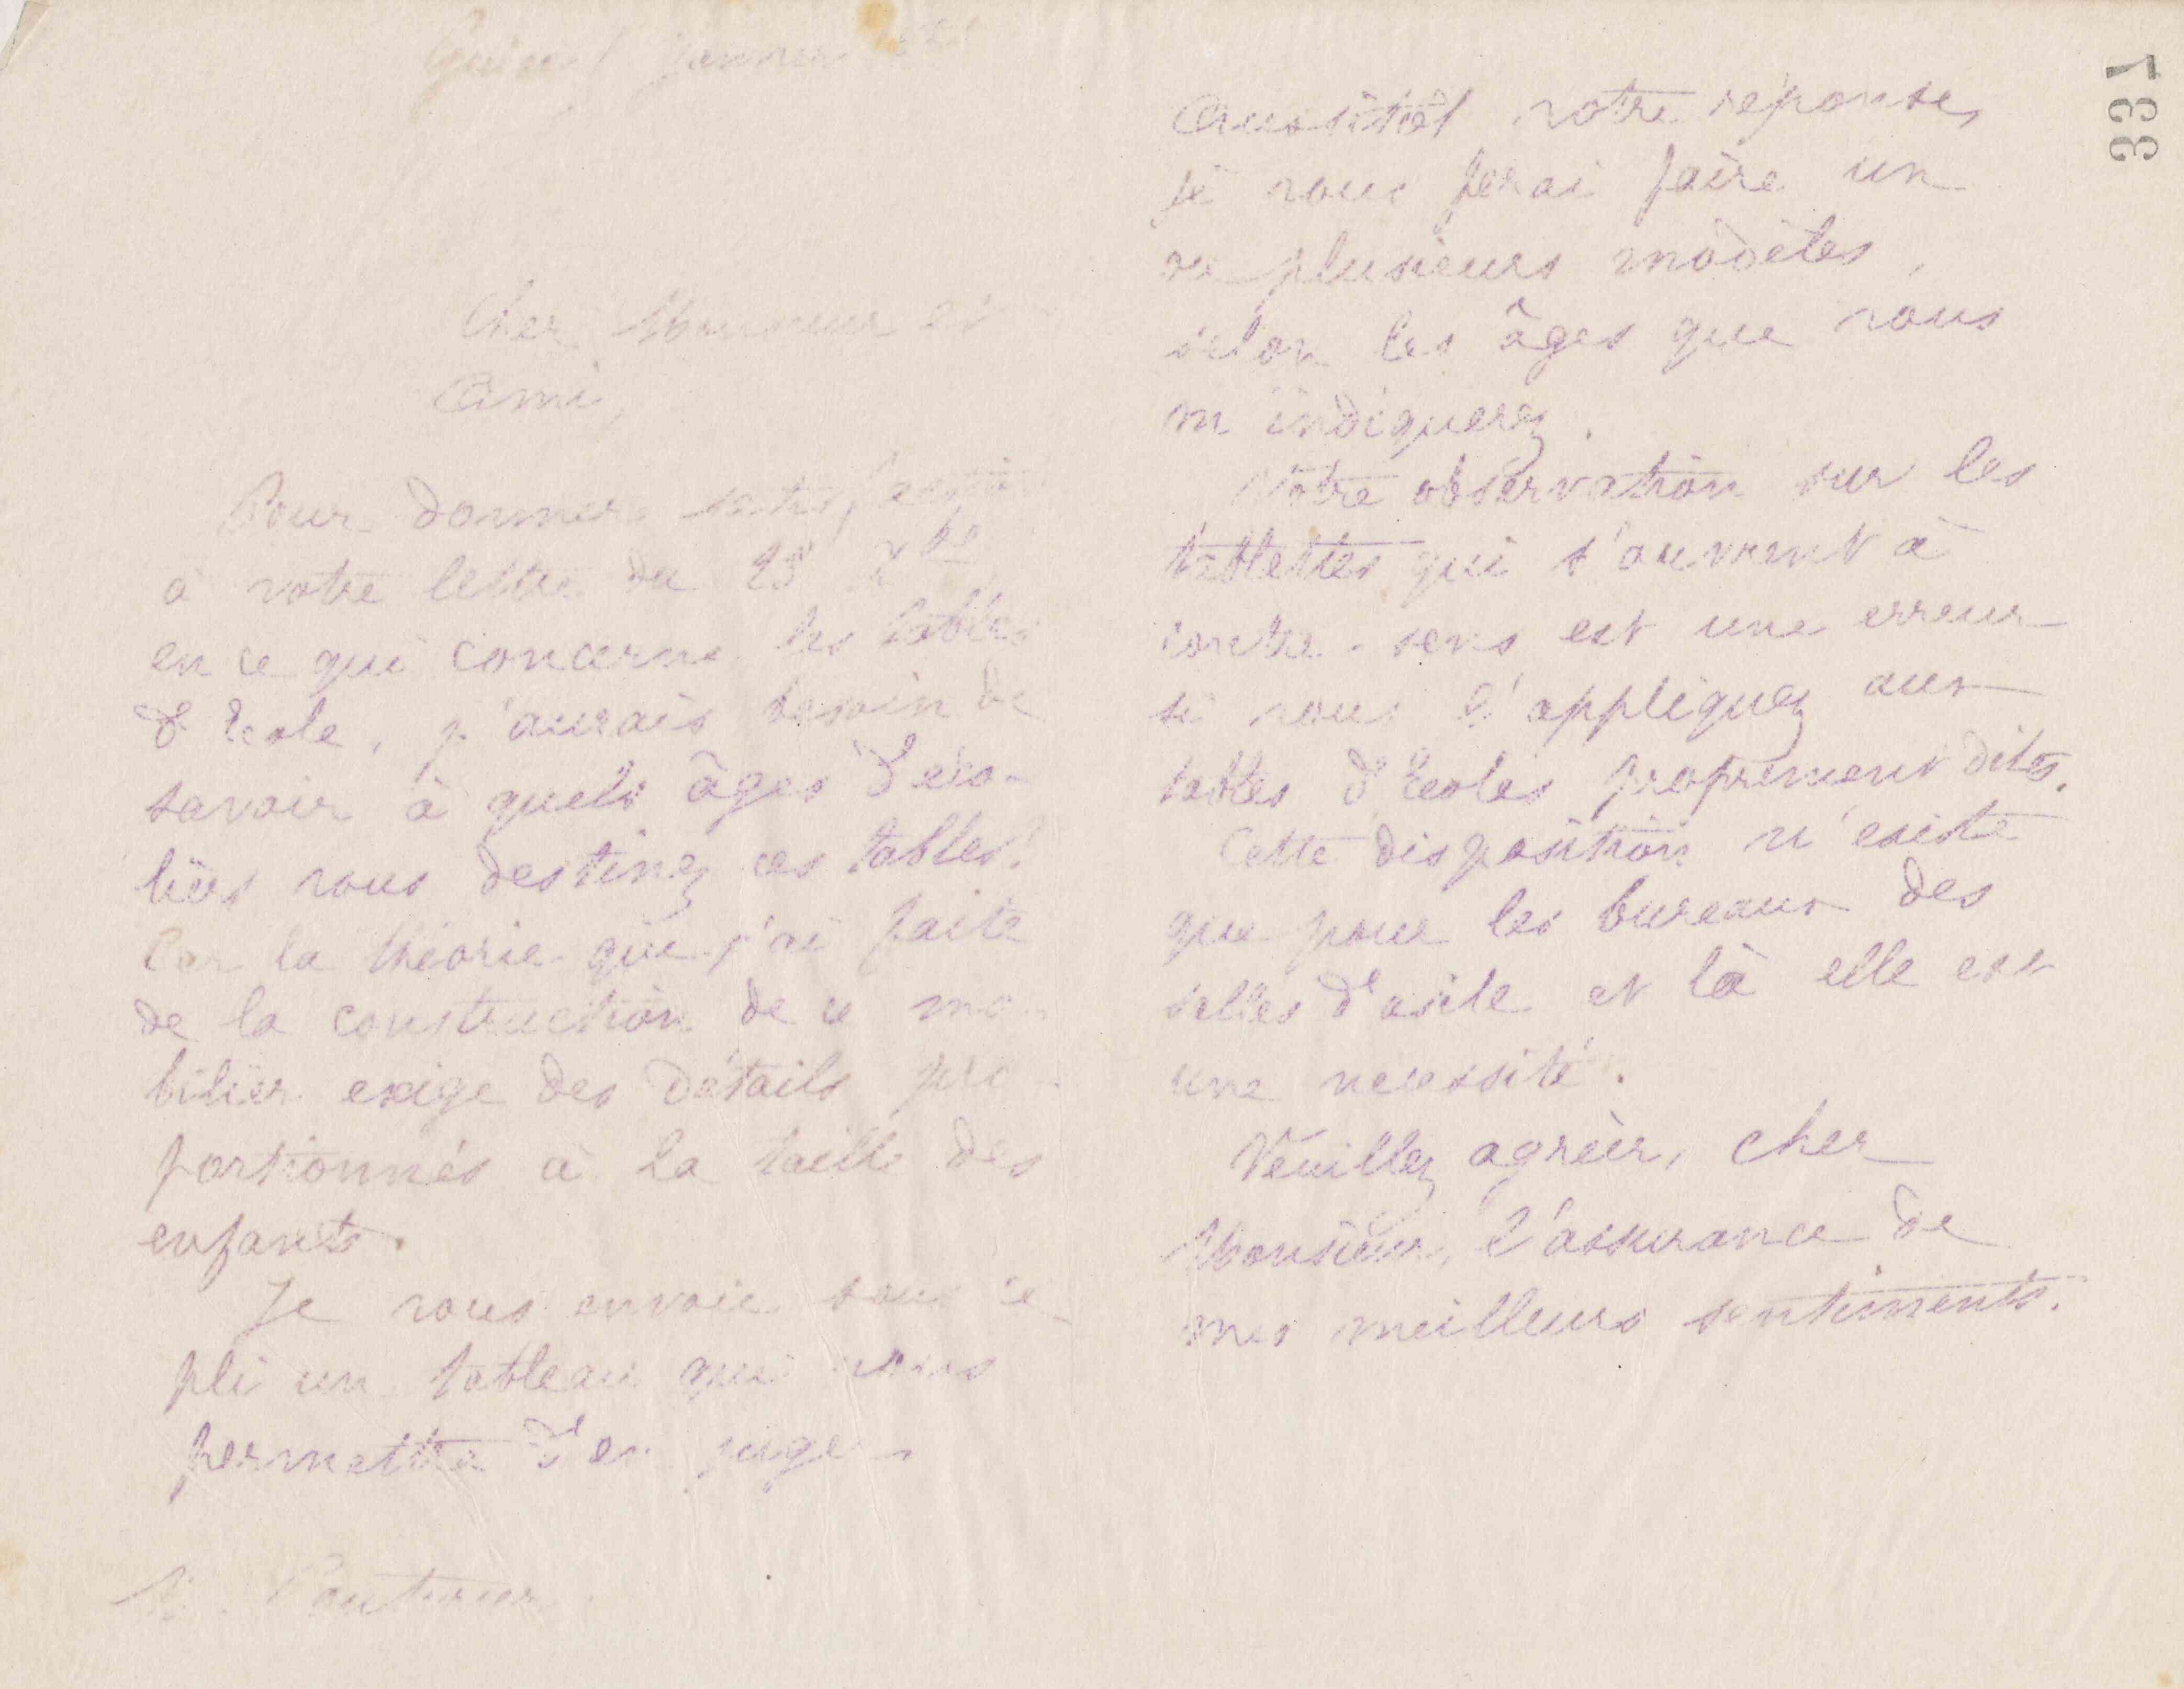 Guise janvier
Cher Monsieur et
Ami,
Pour donner satisfaction
à votre lettre du 23 Xbre
en ce qui concerne les tables
d'Ecole, j'aurais besoin de
savoir à quels âges d'éco-
liers vous destinez ces tables.
Car la théorie que j'ai faite
de la construction de ce mo-
bilier exige des détails pro-
portionnés à la taille des
enfants.
Je vous envoie sous ce
pli un tableau qui vous
permettra d'en juger
M.
337
Aussitôt votre réponse,
je vous ferai faire un
ou plusieurs modèles,
selon les âges que vous
m'indiquerez.
Votre observation sur les
tablettes qui s'ouvrent à
contre-sens est une erreur
si vous l'appliquez aux
tables d'Ecoles proprement dites.
Cette disposition n'existe
que pour les bureaux des
salles d'asile et là elle est
une nécessité.
Veuillez agréer, cher
Monsieur, l'assurance de
mes meilleurs sentiments.